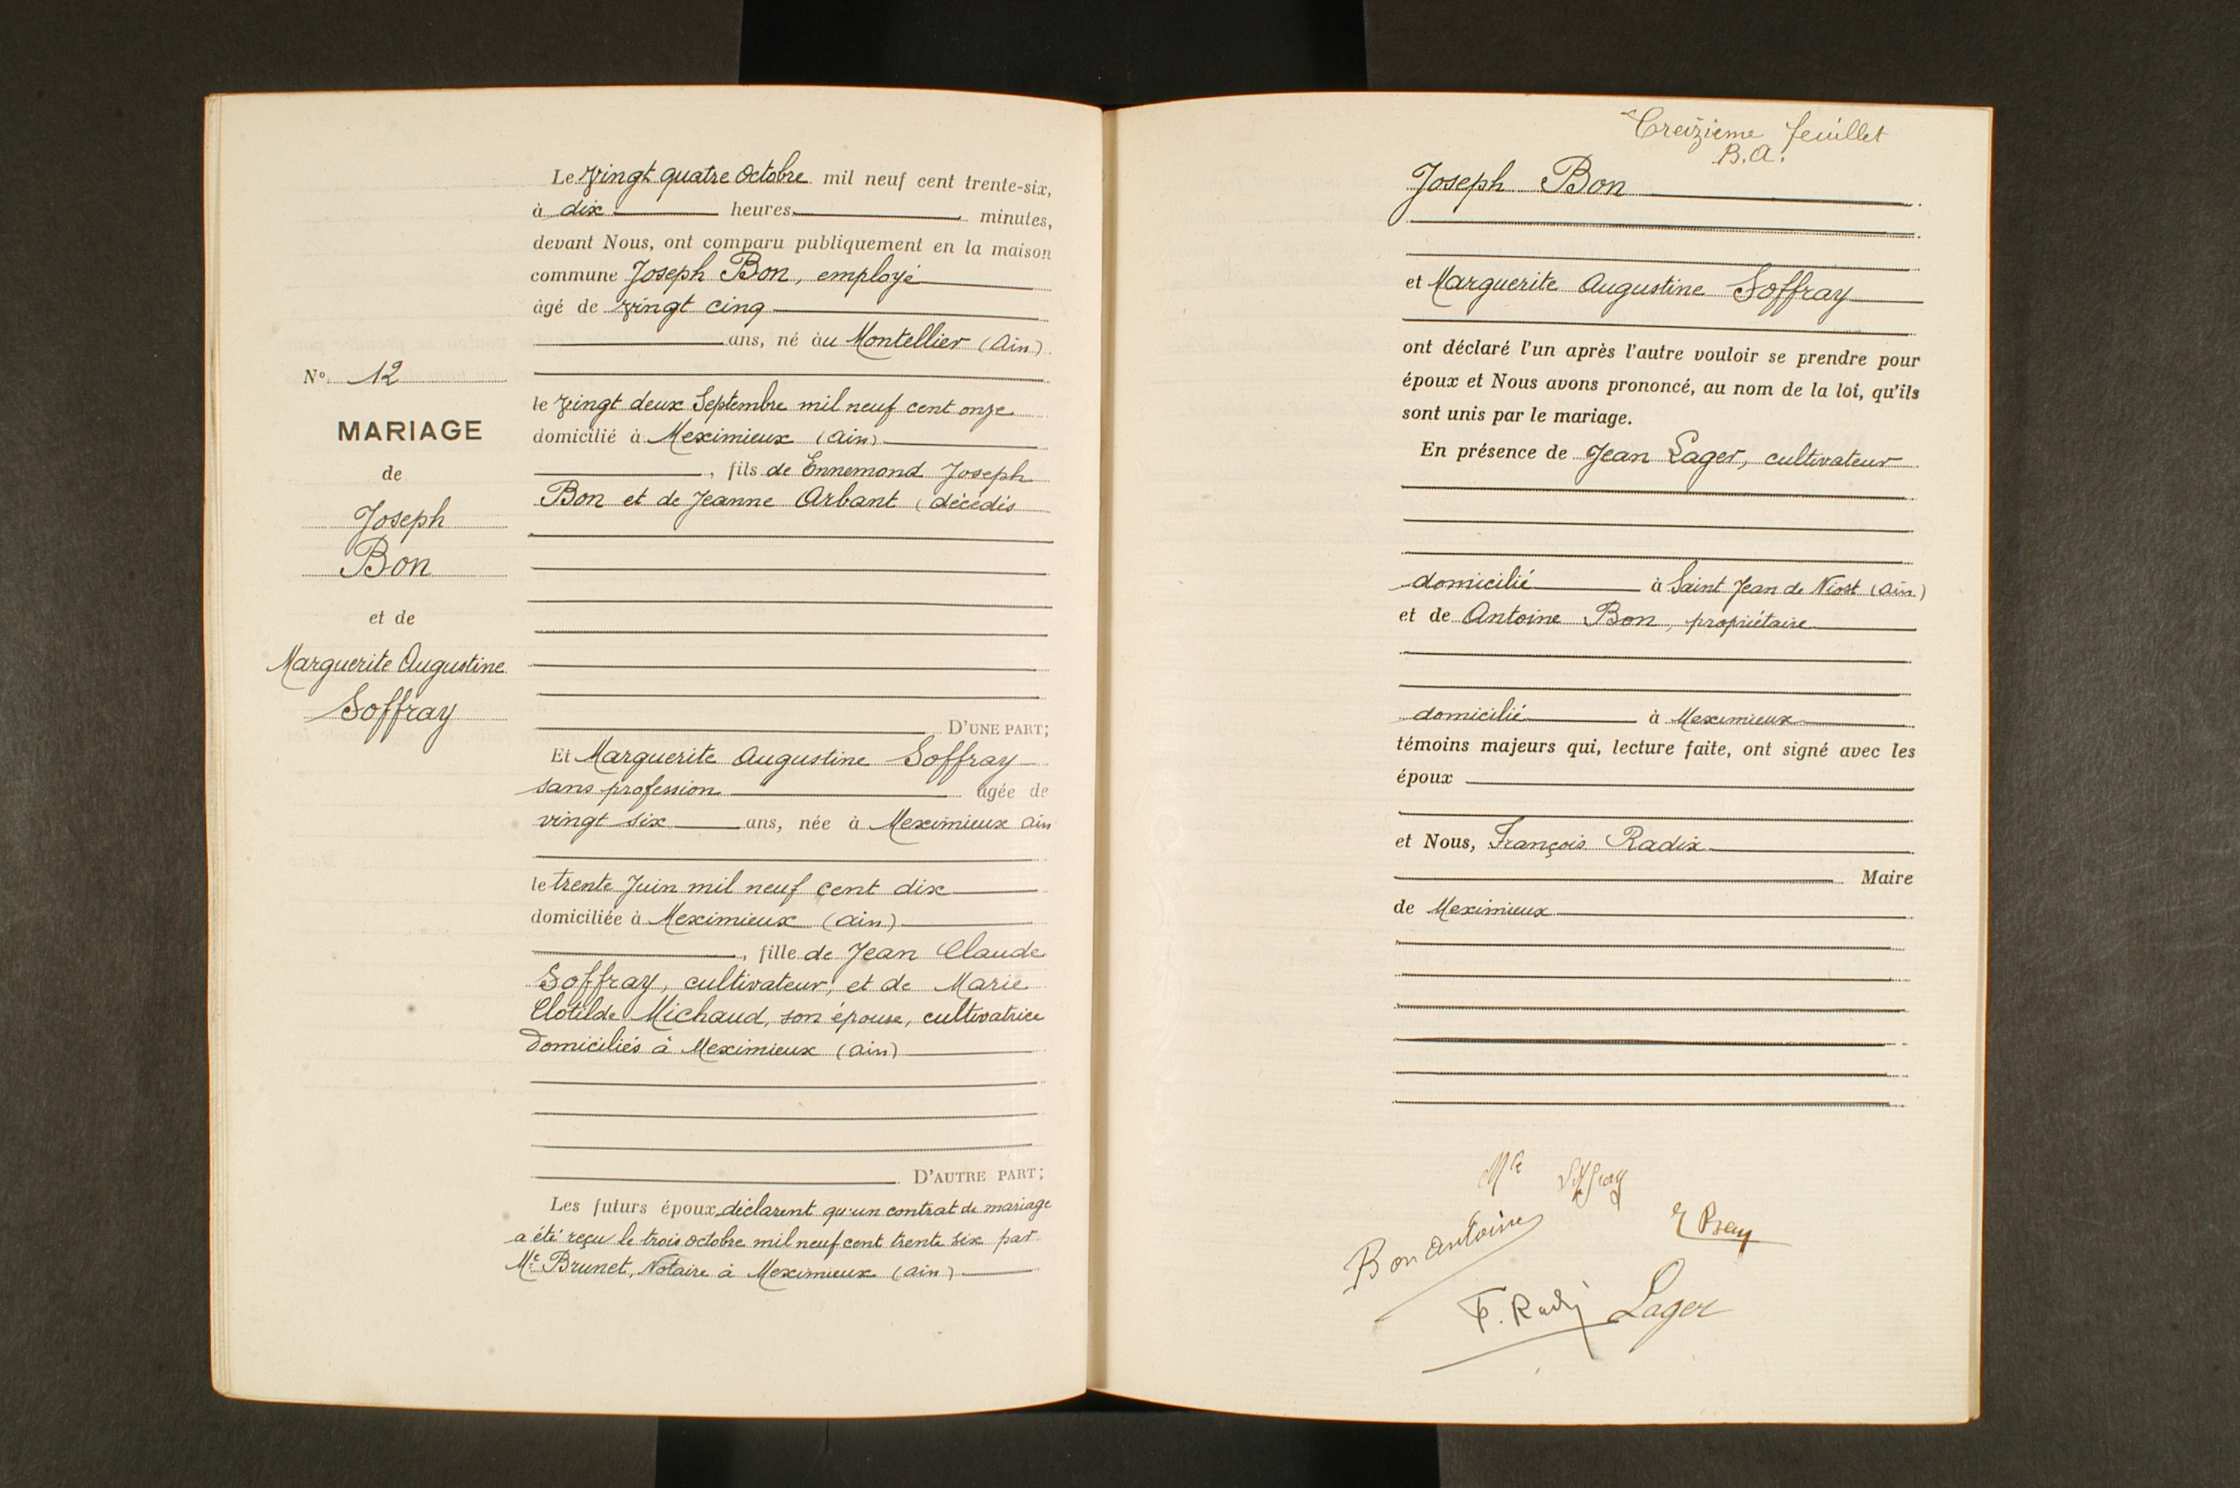 N° 12
MARIAGE
de
Joseph
Bon
et de
Marguerite Augustine
Soffray
Le vingt quatre Octobre mil neuf cent trente-six,
à dix heures minutes,
devant Nous, ont comparu publiquement en la maison
commune Joseph Bon, employé
âgé de vingt cinq
ans, né au Montellier (Ain)
le vingt deux Septembre mil neuf cent onze
domicilié à Meximieux (Ain)
, fils de Ennemond Joseph
Bon et de Jeanne Arbant (décédés
D'UNE PART;
Et Marguerite Augustine Soffray
sans profession âgée de
vingt six ans, née à Meximieux Ain
le trente Juin mil neuf cent dix
domiciliée à Meximieux (Ain)
, fille de Jean Claude
Soffray, cultivateur, et de Marie
Clotilde Michaud, son épouse, cultivatrice
domiciliés à Meximieux (Ain)
D'AUTRE PART;
Les futurs époux déclarent qu'un contrat de mariage
a été reçu le trois octobre mil neuf cent trente six par
Me Brunet, Notaire à Meximieux (Ain)
Treizième feuillet
B.A.
Joseph Bon
et Marguerite Augustine Soffray
ont déclaré l'un après l'autre vouloir se prendre pour
époux et Nous avons prononcé, au nom de la loi, qu'ils
sont unis par le mariage.
En présence de Jean Lager, cultivateur
domicilié à Saint Jean de Niost (Ain)
et de Antoine Bon, propriétaire
domicilié à Meximieux
témoins majeurs qui, lecture faite, ont signé avec les
époux
et Nous, François Radix
Maire
de Meximieux
Soffray
Bon Antoine
F. Radix Lager